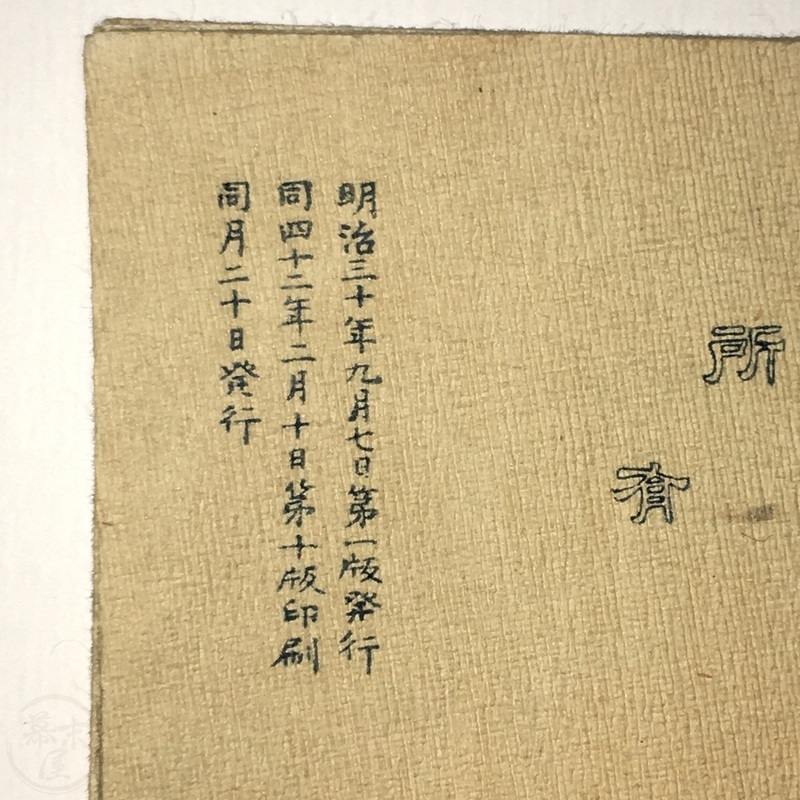 所
有
明治三十年九月七日第一版発行
同四十二年二月十日第十版印刷
同月二十日発行
幕末屋